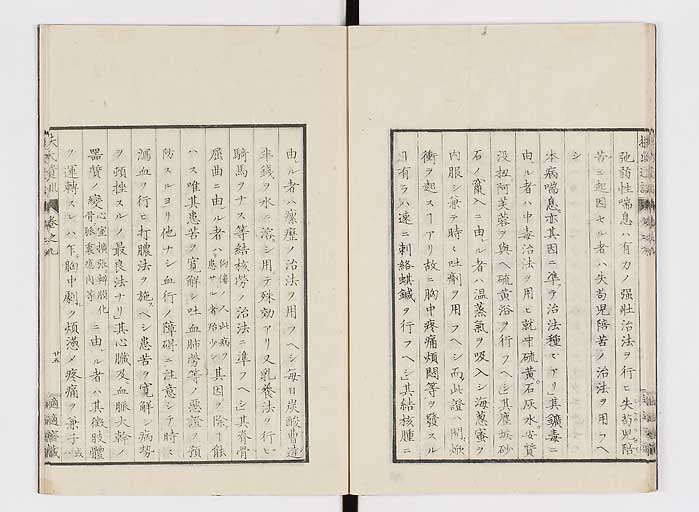 弛弱性喘息ハ有力ノ強壮治法ヲ行ヒ失苟児陪
苦ニ起因セル者ハ失苟児陪苦ノ治法ヲ用フヘ
シ
本病喘息亦其因ニ準テ治法種々アリ其鑛毒ニ
由ル者ハ中毒治法ヲ用ヒ就中硫黄石灰水安質
没扭阿芙蓉ヲ與ヘ硫黄浴ヲ行フヘシ其塵埃砂
石ノ竄入ニ由ル者ハ温蒸氣ヲ吸入シ海葱蜜ヲ
内服シ兼テ時々吐劑ヲ用フヘシ而此證ハ間焮
衝ヲ起スアリ故ニ胸中疼痛煩悶等ヲ發スル
有ラハ速ニ刺絡蜞鍼ヲ行フヘシ其結核腫ニ
由ル者ハ瘰癧ノ治法ヲ用フヘシ毎日炭酸曹達
半錢ヲ水ニ溶シ用テ殊効アリ又乳養法ヲ行ヒ
騎馬ヲナス等結核勞ノ治法ニ準フヘシ其脊骨
屈曲ニ由ル者ハ其因ヲ除ク能
ハス唯其患苦ヲ寛解シ吐血肺勞等ノ悪證ヲ預
防スルヨリ他ナシ血行ノ障碍ニ注意シテ時々
瀉血ヲ行ヒ打膿法ヲ施ヘシ患苦ヲ寛解シ病勞
ヲ頓挫スルノ最良法ナリ其心臓及血脈大幹ノ
器質ノ變心室擴張瓣膜化骨ニ由ル者ハ其微肢體
ヲ運轉スレハ乍胸中劇ク煩懣メ疼痛ヲ兼子或
扶氏遺訓 巻之九
廿五 適適齋蔵